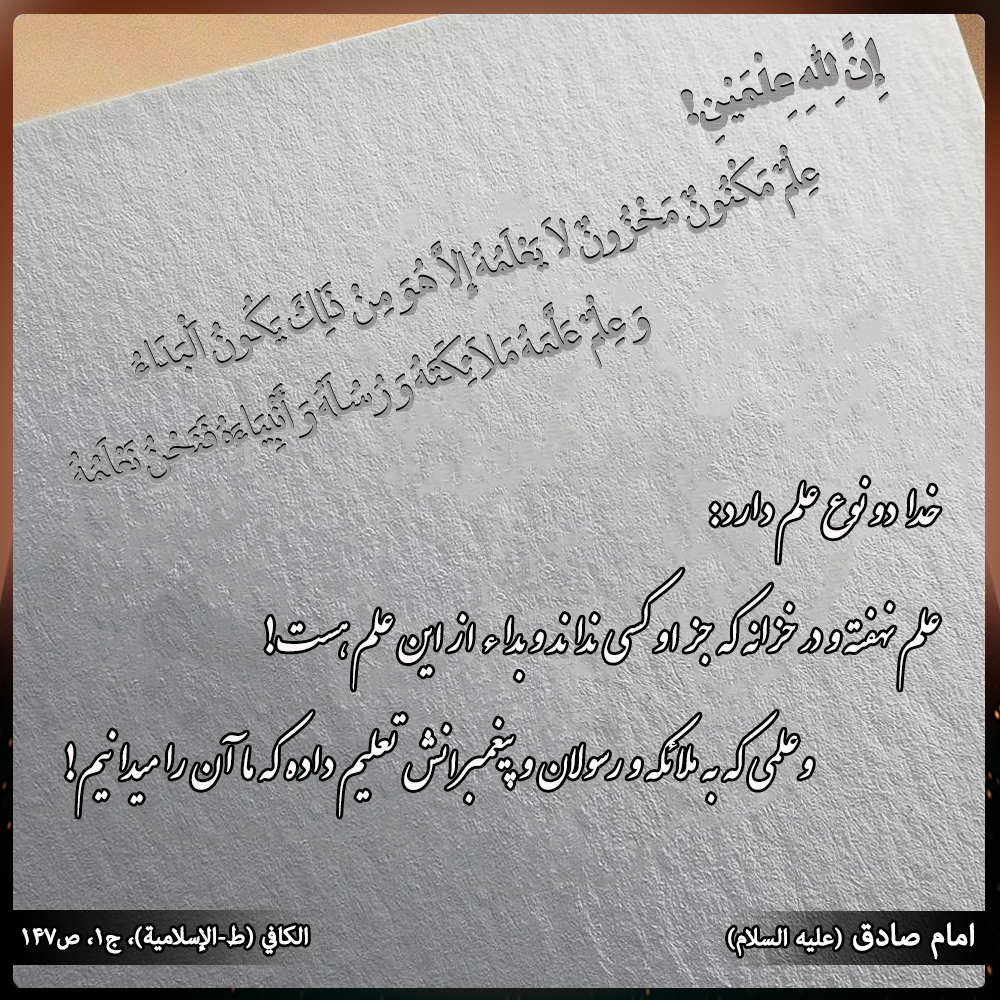 إِنَّ لِلَّهِ عِلْمَيْنِ!
عِلْمٌ مَكْنُونٌ مَخْزُونٌ لاَ يَعْلَمُهُ إِلاَّ هُوَ مِنْ ذَلِكَ يَكُونُ اَلْبَدَاءُ
وَ عِلْمٌ عَلَّمَهُ مَلاَئِكَتَهُ وَ رُسُلَهُ وَ أَنْبِيَاءَهُ فَنَحْنُ نَعْلَمُهُ
خدا دو نوع علم دارد:
علم نهفته و در خزانه که جز او کسی نداند و بداء از این علم هست!
و علمی که به ملائکه و رسولان و پیغمبرانش تعلیم داده که ما آن را میدانیم!
امام صادق (علیه السلام)
الكافي (ط-الإسلامية)، ج۱، ص۱۴۷